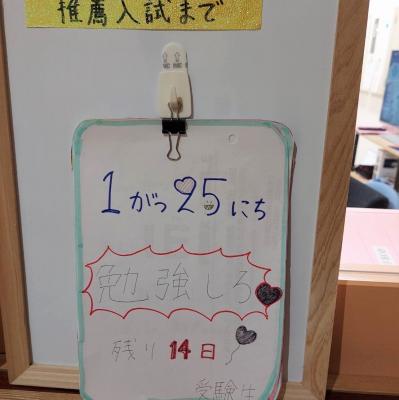 推薦入試まで
1がつ25にち
勉強しろ
残り14日
受験生